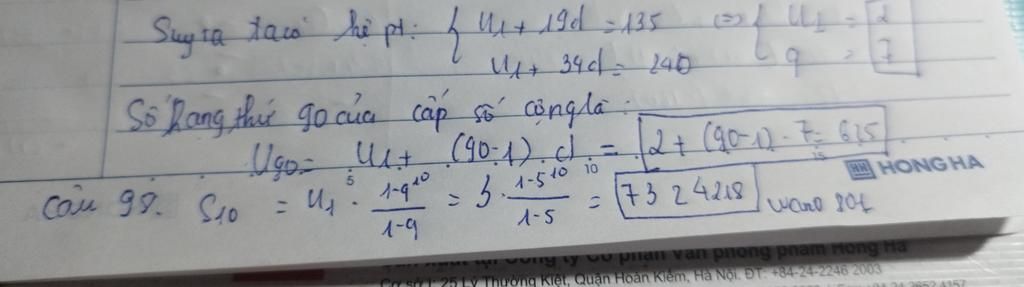 Suy ra ta có hệ pt: { U1 + 19d = 135 <=> { U1 = 2
U1 + 34d = 240 q = 7
Số hạng thứ 90 của cấp số cộng là:
U90 = U1 + (90-1).d = 2 + (90-1).7 = 625
HH HONG HA
Câu 98. S10 = U1 . 1-q^10 / 1-q = 3 . 1-5^10 / 1-5 = 7324218
Công ty Cổ phần Văn phòng phẩm Hồng Hà
25 Lý Thường Kiệt, Quận Hoàn Kiếm, Hà Nội. ĐT: +84-24-2246 2003